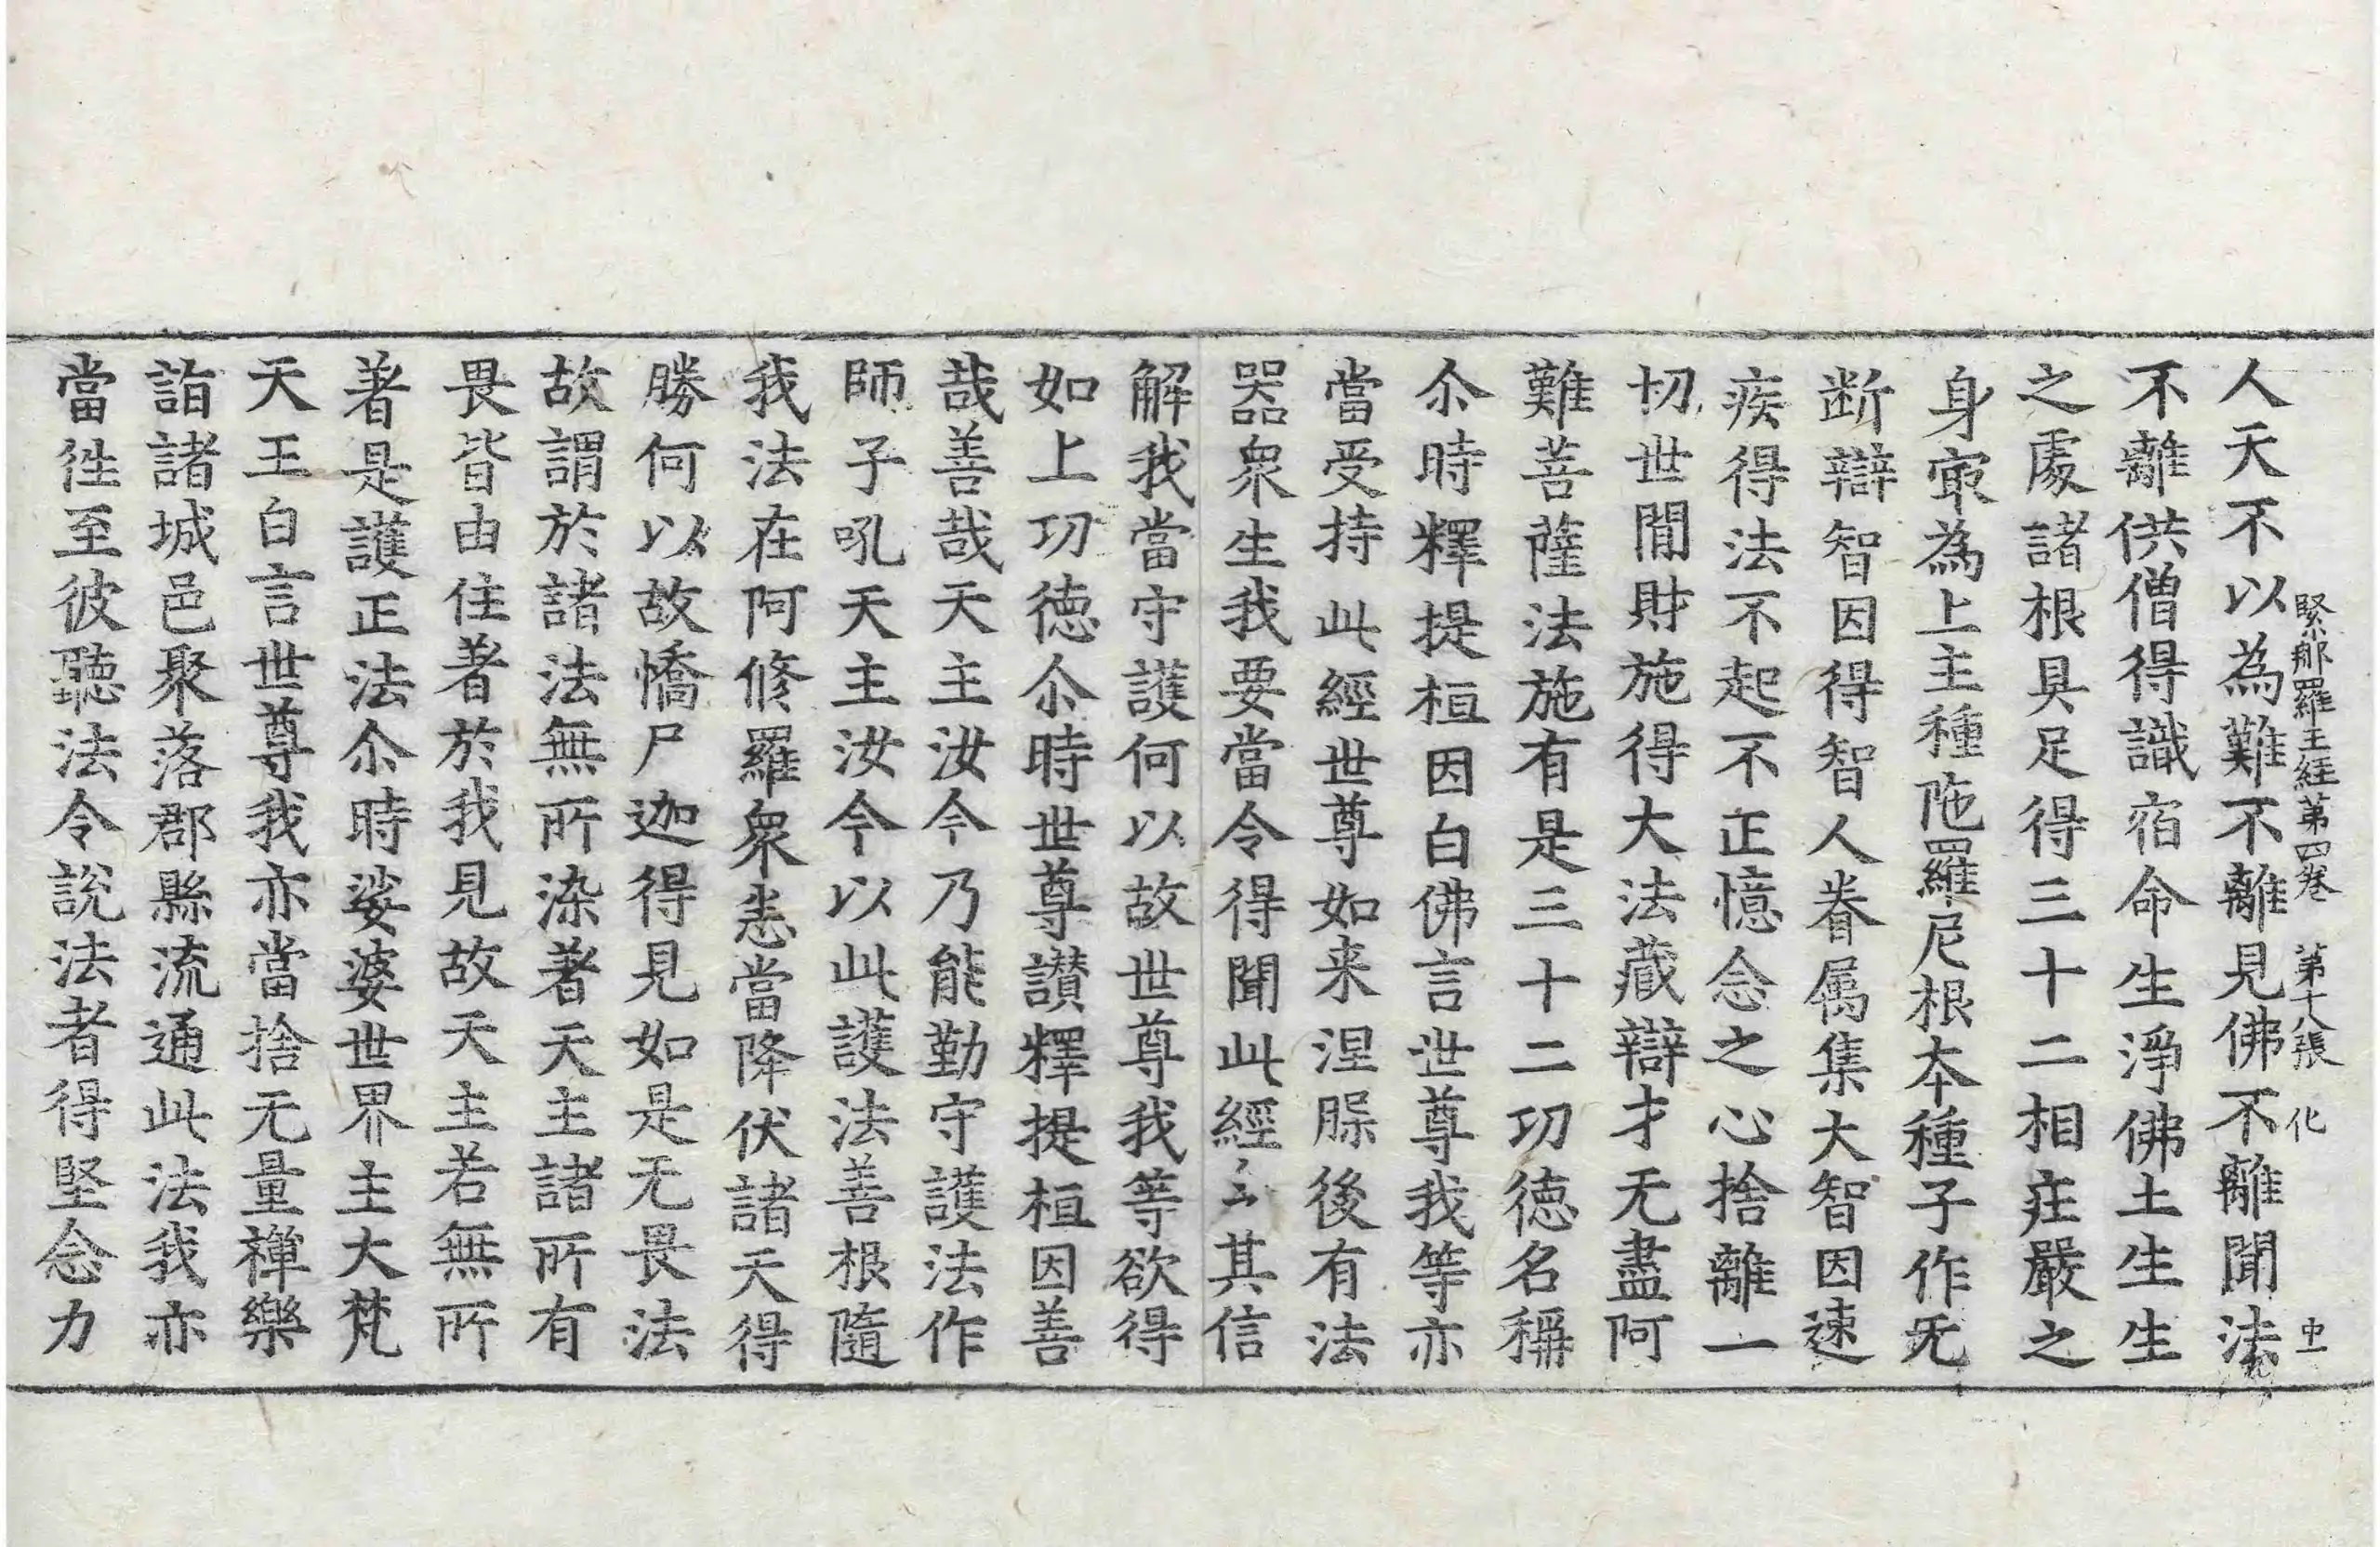 緊那羅王經第四卷　第十八張　化　中
人天不以為難不離見佛不離聞法
不離供僧得識宿命生淨佛土生生
之處諸根具足得三十二相庄嚴之
身㝡為上主種陁羅尼根本種子作无
断辯智因得智人眷属集大智因速
疾得法不起不正憶念之心捨離一
切世間財施得大法藏辯才无盡阿
難菩薩法施有是三十二功德名稱
尒時釋提桓因白佛言世尊我等亦
當受持此經世尊如来涅槃後有法
器衆生我要當令得聞此經令其信
解我當守護何以故世尊我等欲得
如上功德尒時世尊讃釋提桓因善
哉善哉天主汝今乃能勤守護法作
師子吼天主汝今以此護法善根隨
我法在阿修羅衆恙當降伏諸天得
勝何以故憍尸迦得見如是无畏法
故謂於諸法無所染著天主諸所有
畏皆由住著於我見故天主若無所
著是護正法尒時娑婆世界主大梵
天王白言世尊我亦當捨无量禅樂
詣諸城邑聚落郡縣流通此法我亦
當徃至彼聽法令說法者得堅念力